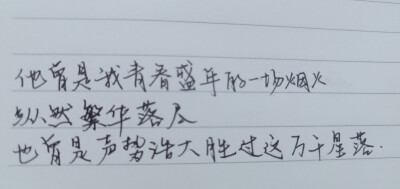 他曾是我青春盛年的一场烟火
纵然繁华落尽
也曾是声势浩大胜过这万千星落.